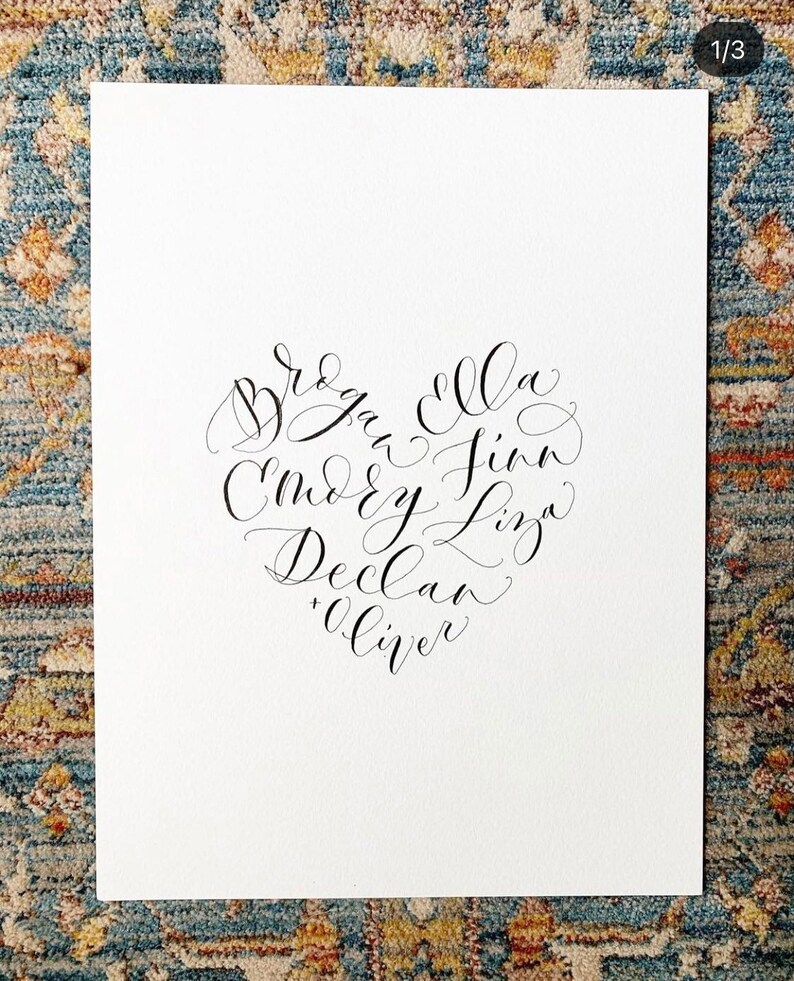 1/3
Brogan Ella
Emory Finn
Liza
Declan
+ Oliver